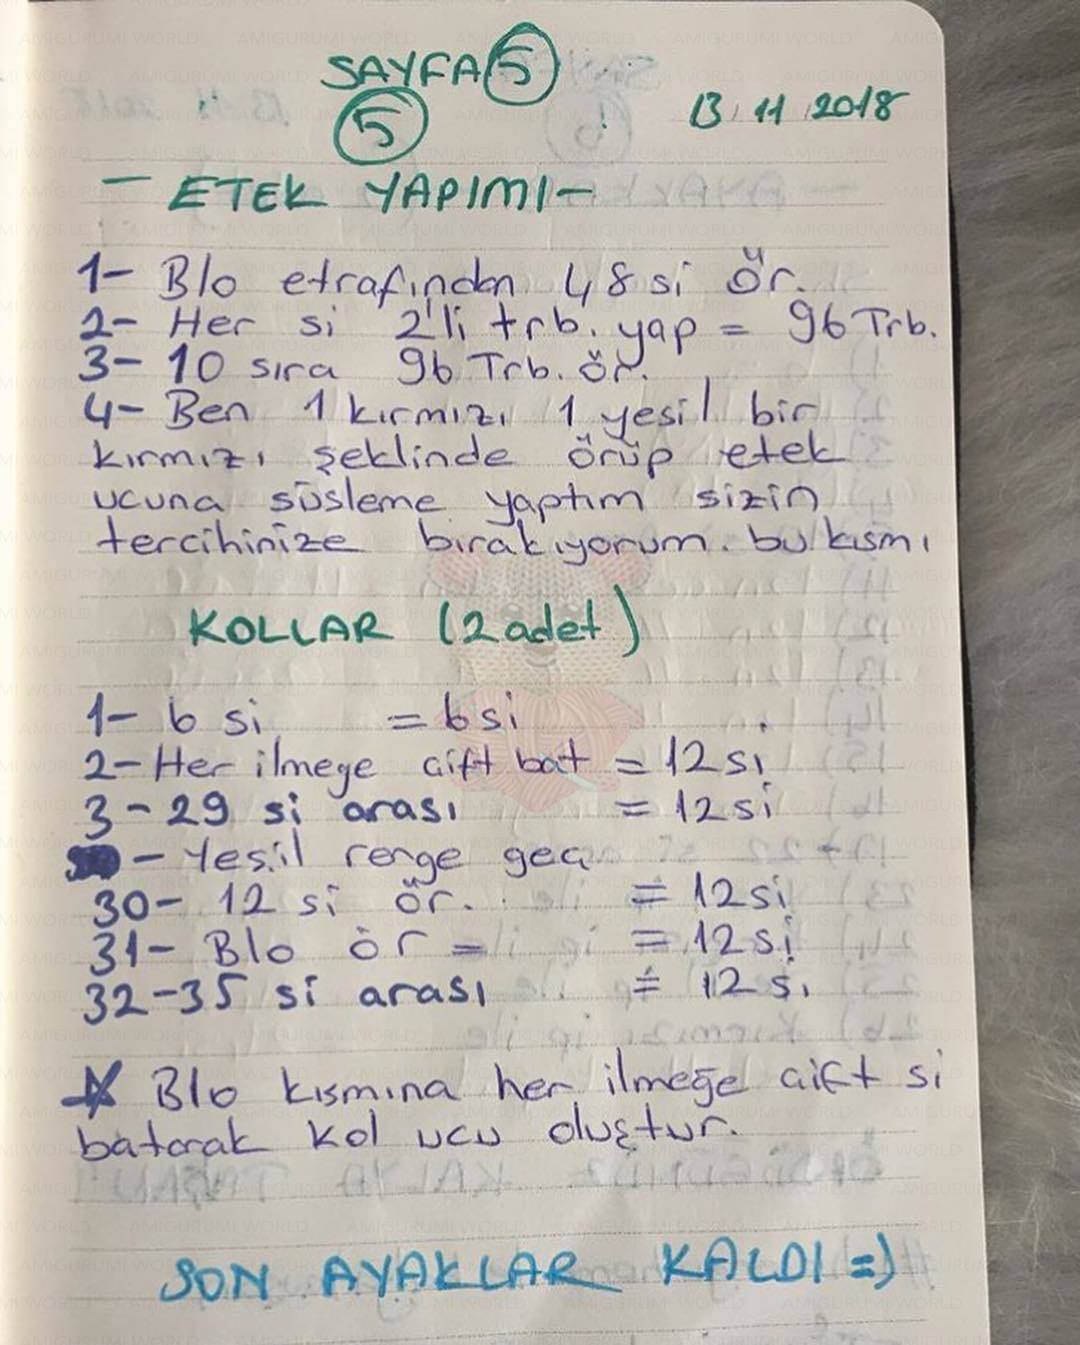 SAYFA 5
5
13.11.2018
- ETEK YAPIMI -
1- Blo etrafından 48 si ör.
2- Her si 2'li trb. yap = 96 Trb.
3- 10 sıra 96 Trb. ör.
4- Ben 1 kırmızı 1 yesil bir
kırmızı şeklinde örüp etek
ucuna süsleme yaptım sizin
tercihinize bırakıyorum. bu kısmı
KOLLAR (2 adet)
1- 6 si = 6 si
2- Her ilmege çift bat = 12 si
3 - 29 si arası = 12 si
- Yesil renge geç
30- 12 si ör. = 12 si
31- Blo ör = = 12 si
32-35 si arası = 12 si
Blo kısmına her ilmeğe çift si
batarak kol ucu oluştur.
SON AYAKLAR KALDI =)